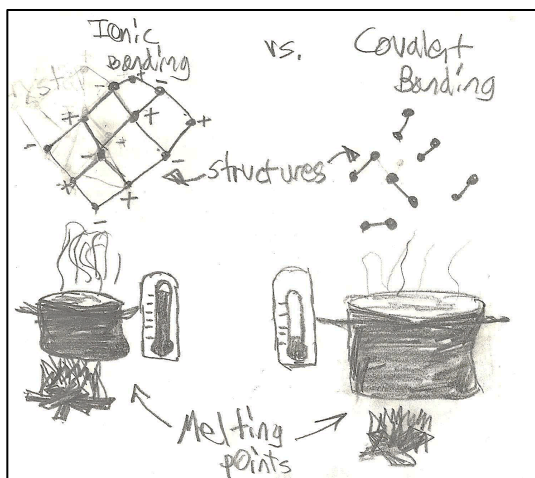 Ionic
Bonding
vs.
Covalent
Bonding
structures
Melting
points